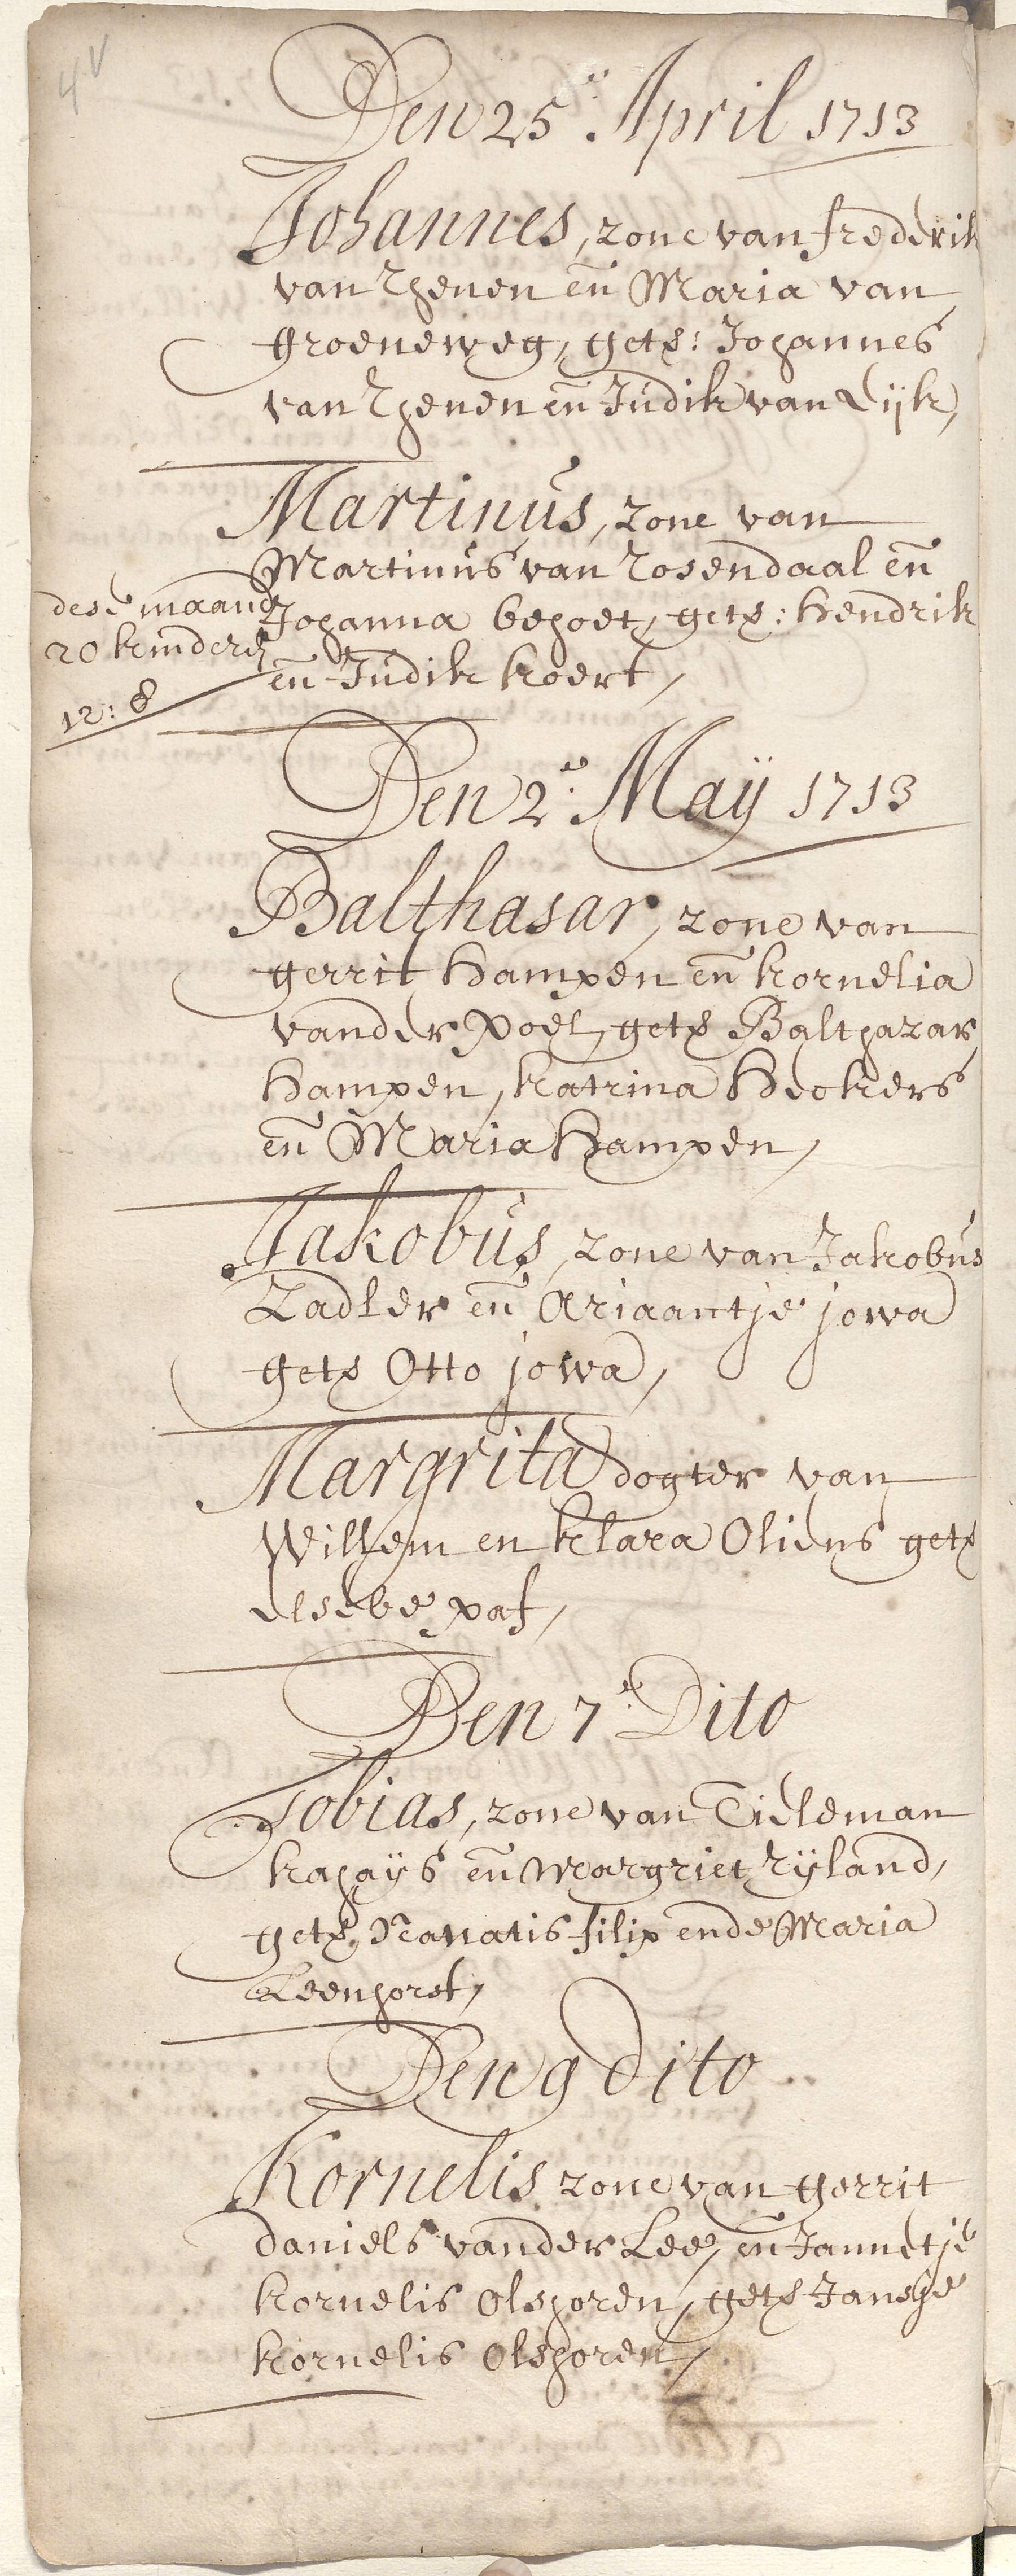 4v
Den 25e. April 1713
Johannes, zone van frederik
van Rhenen en̄ Maria van
groeneweg, getß: Johannes
van Rhenen en̄ Judik van Dijk,
Martinus, zone van
Martinus van Rosendaal en̄
Johanna behoet, getß: Hendrik
en̄ Judik koert,
dese maand
20 kinder
12: 8
Den 2e. Maÿ 1713
Balthasar, zone van
gerrit Hampen en̄ kornelia
vander Poel, getß Balthazar
Hampen, katrina Heckers
en̄ Maria Hampen,
Jakobus, zone van Jakobus
Zadler en̄ Ariaantje jowa
getß Otto jowa,
Margrita dogter van
Willhem en klara Oliens getß
elsebe paf,
Den 7e. Dito
Tobias, zone van Tieleman
kahaÿs en̄ Margriet Rÿland,
getß, Navatis filip ende Maria
Leenhorst,
Den 9 dito
Kornelis zone van gerrit
daniels vander Lee, en̄ Jannetje
kornelis Olshoren, getß Jansje
kornelis Olshoren,